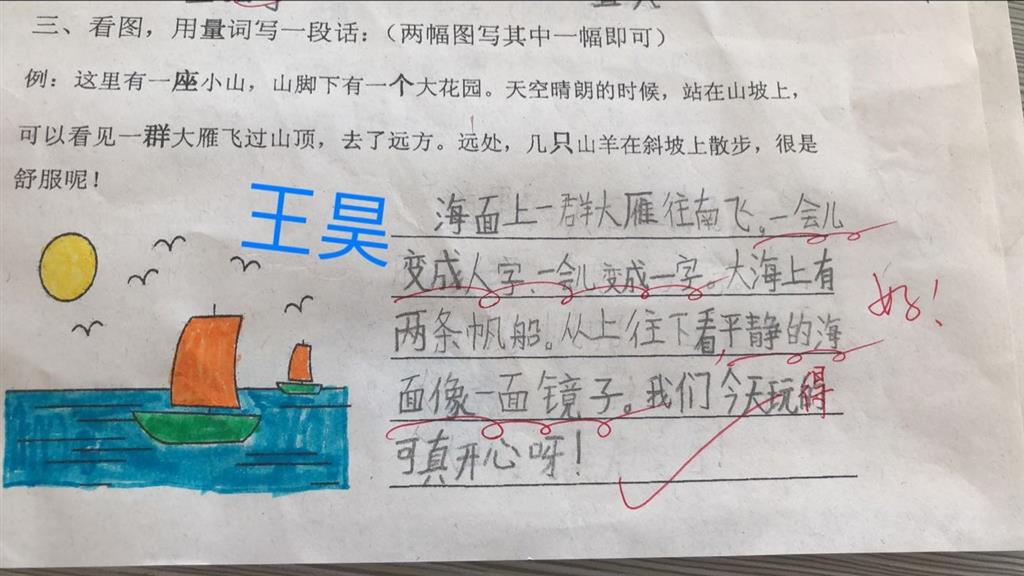 三、看图，用量词写一段话：（两幅图写其中一幅即可）
例：这里有一座小山，山脚下有一个大花园。天空晴朗的时候，站在山坡上，
可以看见一群大雁飞过山顶，去了远方。远处，几只山羊在斜坡上散步，很是
舒服呢！
王昊
海面上一群大雁往南飞。一会儿
变成人字、一会儿变成一字。大海上有
两条帆船。从上往下看，平静的海
面像一面镜子。我们今天玩得
可真开心呀！
好！